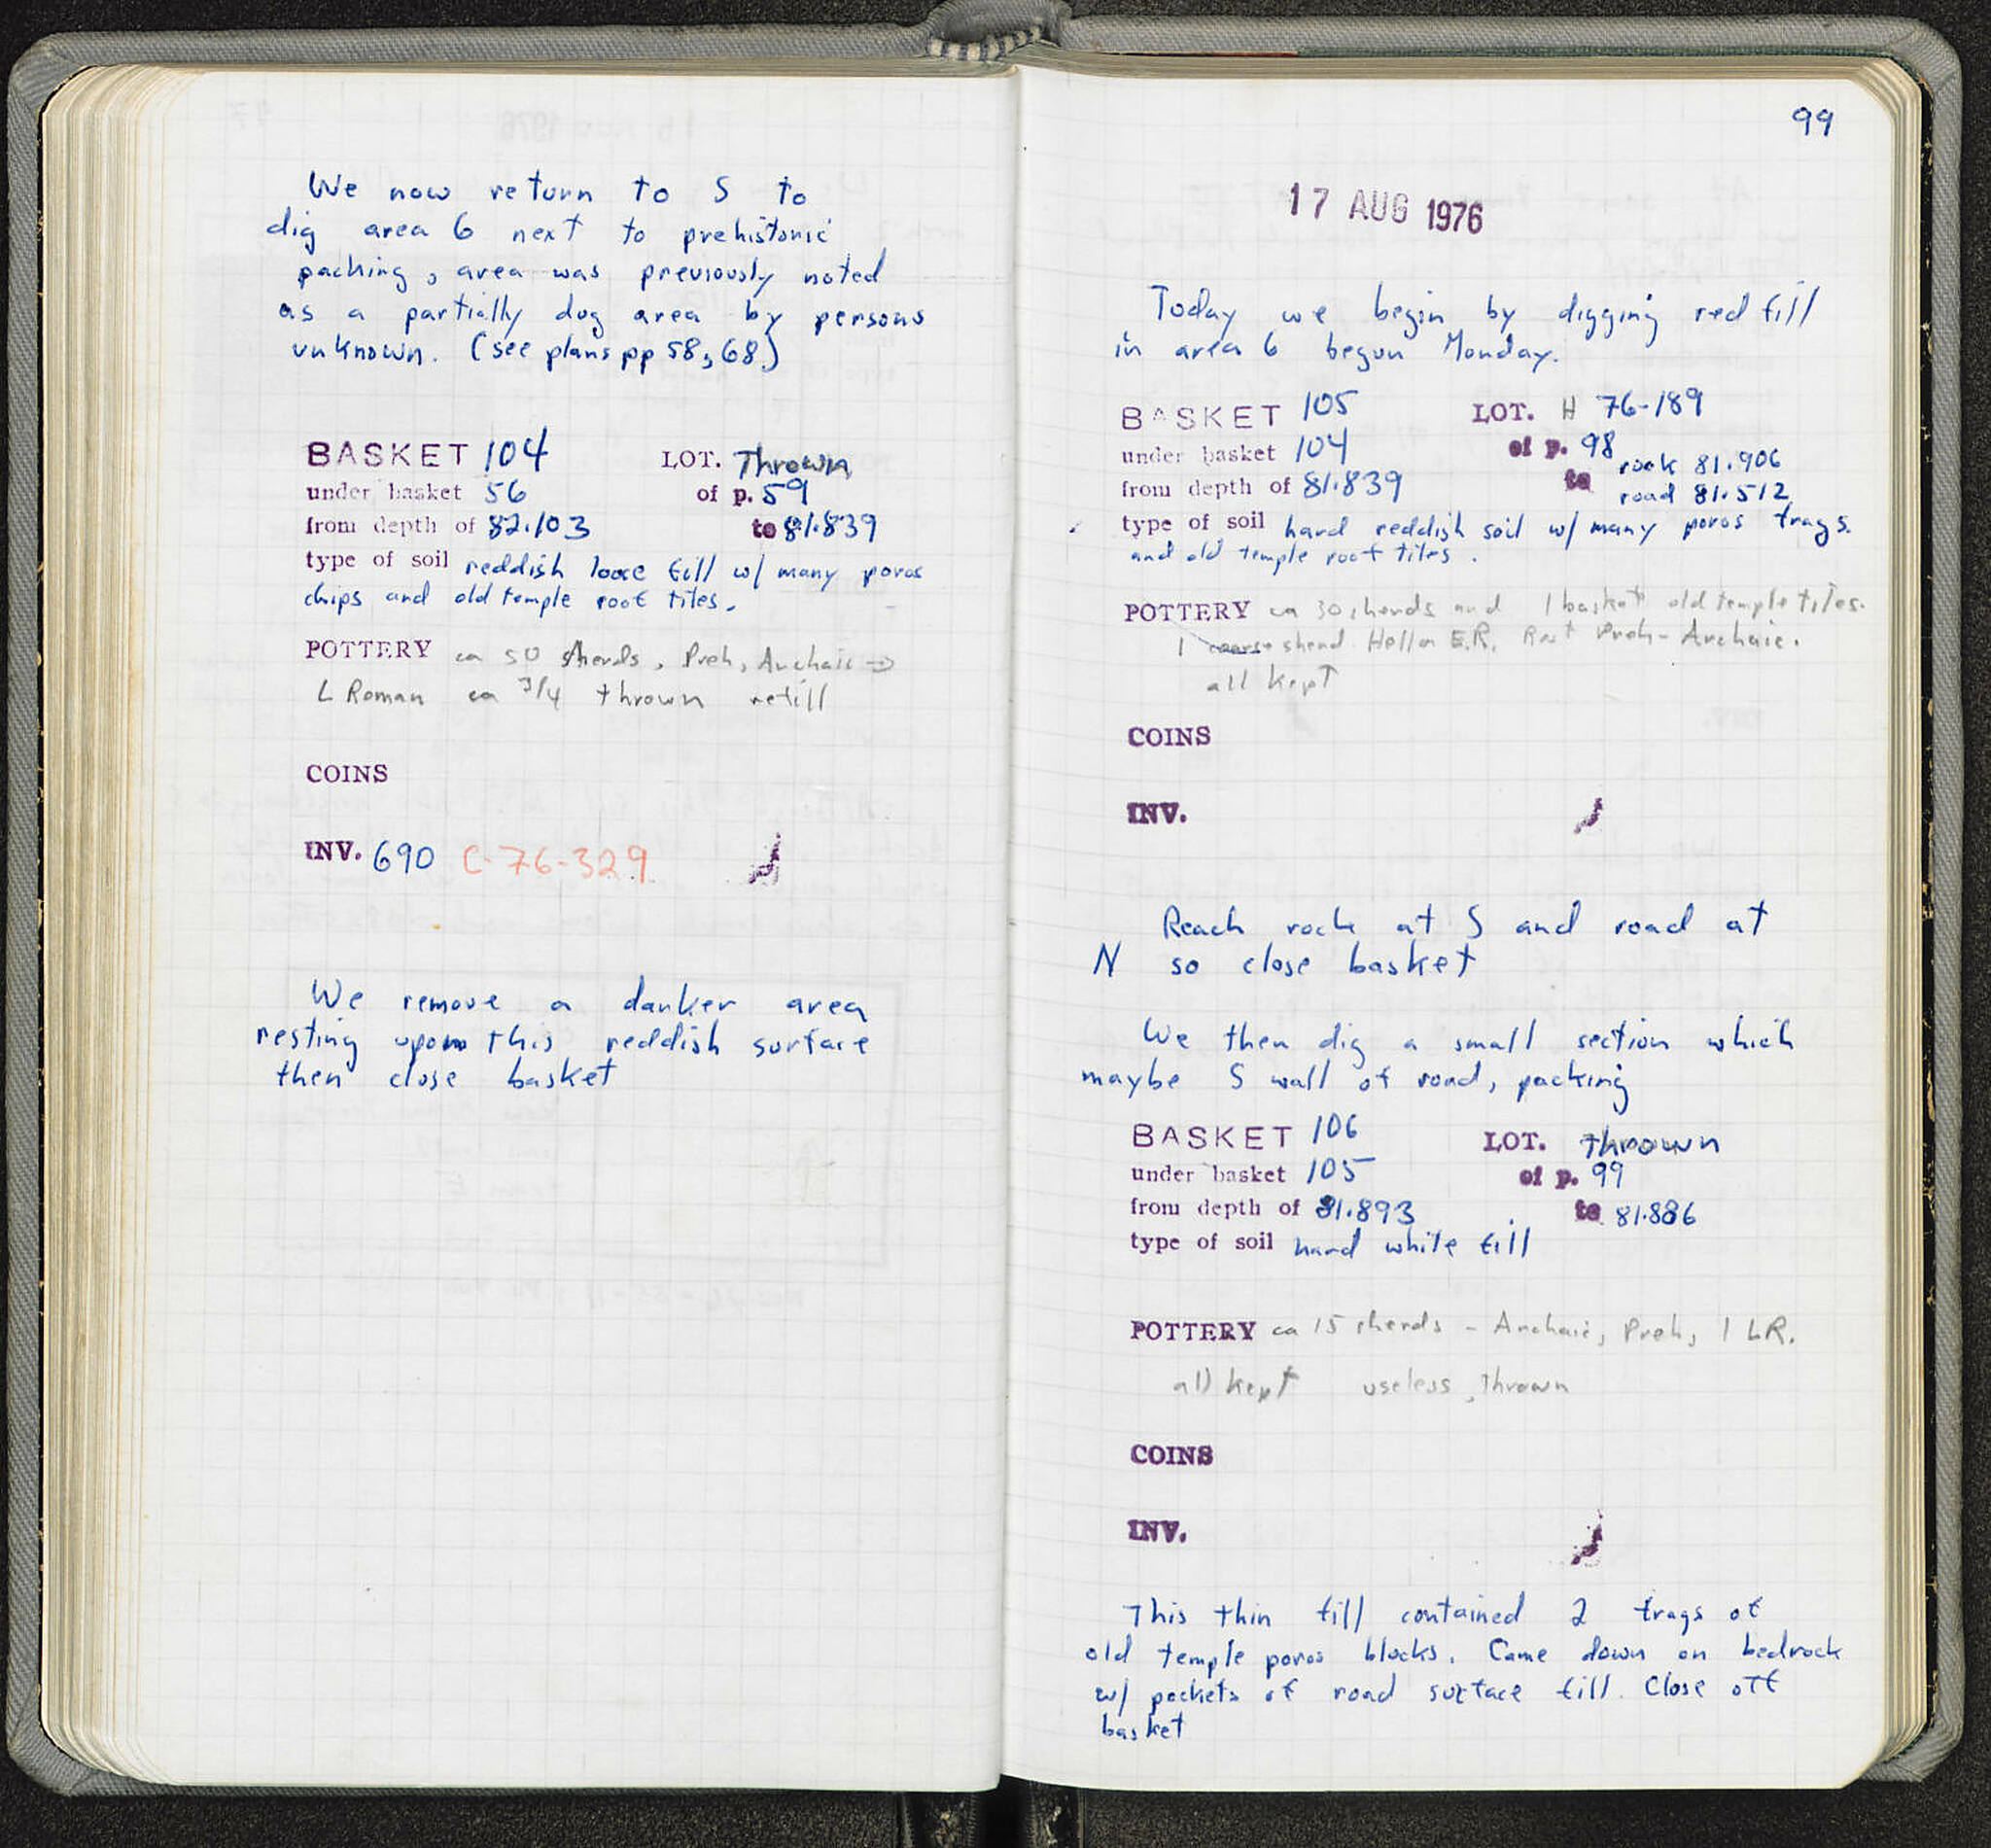 We now return to S to
dig area 6 next to prehistoric
packing, area was previously noted
as a partially dug area by persons
unknown. (see plans pp 58, 68)
BASKET 104 LOT. Thrown
under basket 56 of p. 59
from depth of 82.103 to 81.839
type of soil reddish loose fill w/ many poros
chips and old temple roof tiles.
POTTERY ca 50 sherds, Preh, Archaic →
L Roman ca 3/4 thrown refill
COINS
INV. 690 C-76-329
We remove a darker area
resting upon this reddish surface
then close basket
99
17 AUG 1976
Today we begin by digging red fill
in area 6 begun Monday.
BASKET 105 LOT. H 76-189
under basket 104 of p. 98
from depth of 81.839 to rock 81.906
road 81.512
type of soil hard reddish soil w/ many poros frags.
and old temple roof tiles.
POTTERY ca 30 sherds and 1 basket old temple tiles.
1 coarse sherd Hell or E.R. Rest Preh - Archaic.
all kept
COINS
INV.
Reach rock at S and road at
N so close basket
We then dig a small section which
maybe S wall of road, packing
BASKET 106 LOT. thrown
under basket 105 of p. 99
from depth of 81.893 to 81.886
type of soil hard white fill
POTTERY ca 15 sherds - Archaic, Preh, 1 LR.
all kept useless, thrown
COINS
INV.
This thin fill contained 2 frags of
old temple poros blocks. Came down on bedrock
w/ pockets of road surface fill. Close off
basket